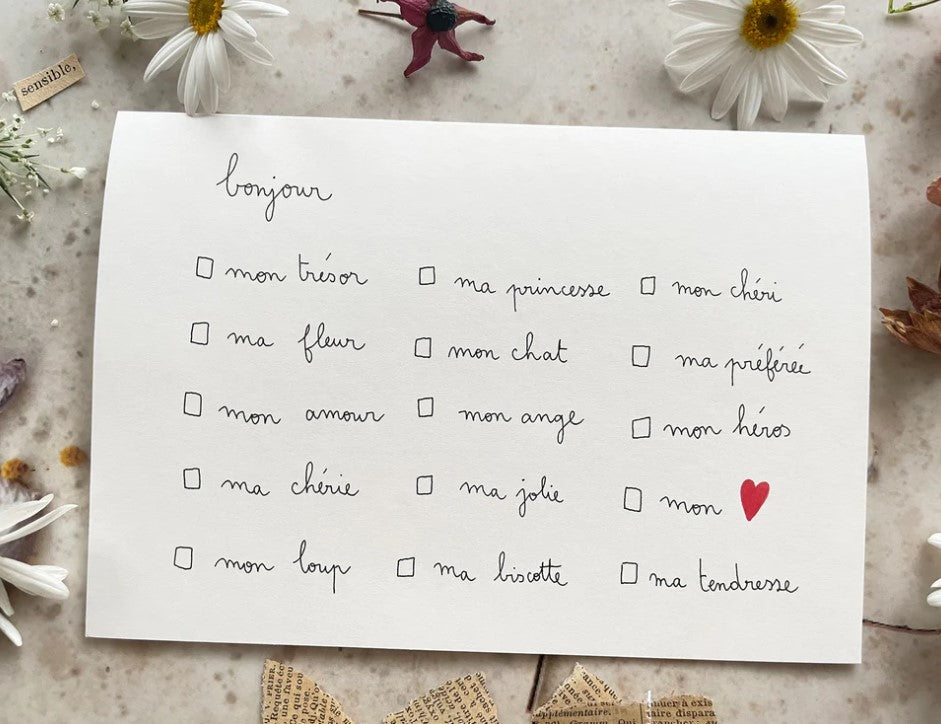 sensible,
bonjour
☐ mon trésor ☐ ma princesse ☐ mon chéri
☐ ma fleur ☐ mon chat ☐ ma préférée
☐ mon amour ☐ mon ange ☐ mon héros
☐ ma chérie ☐ ma jolie ☐ mon ❤
☐ mon loup ☐ ma biscotte ☐ ma tendresse